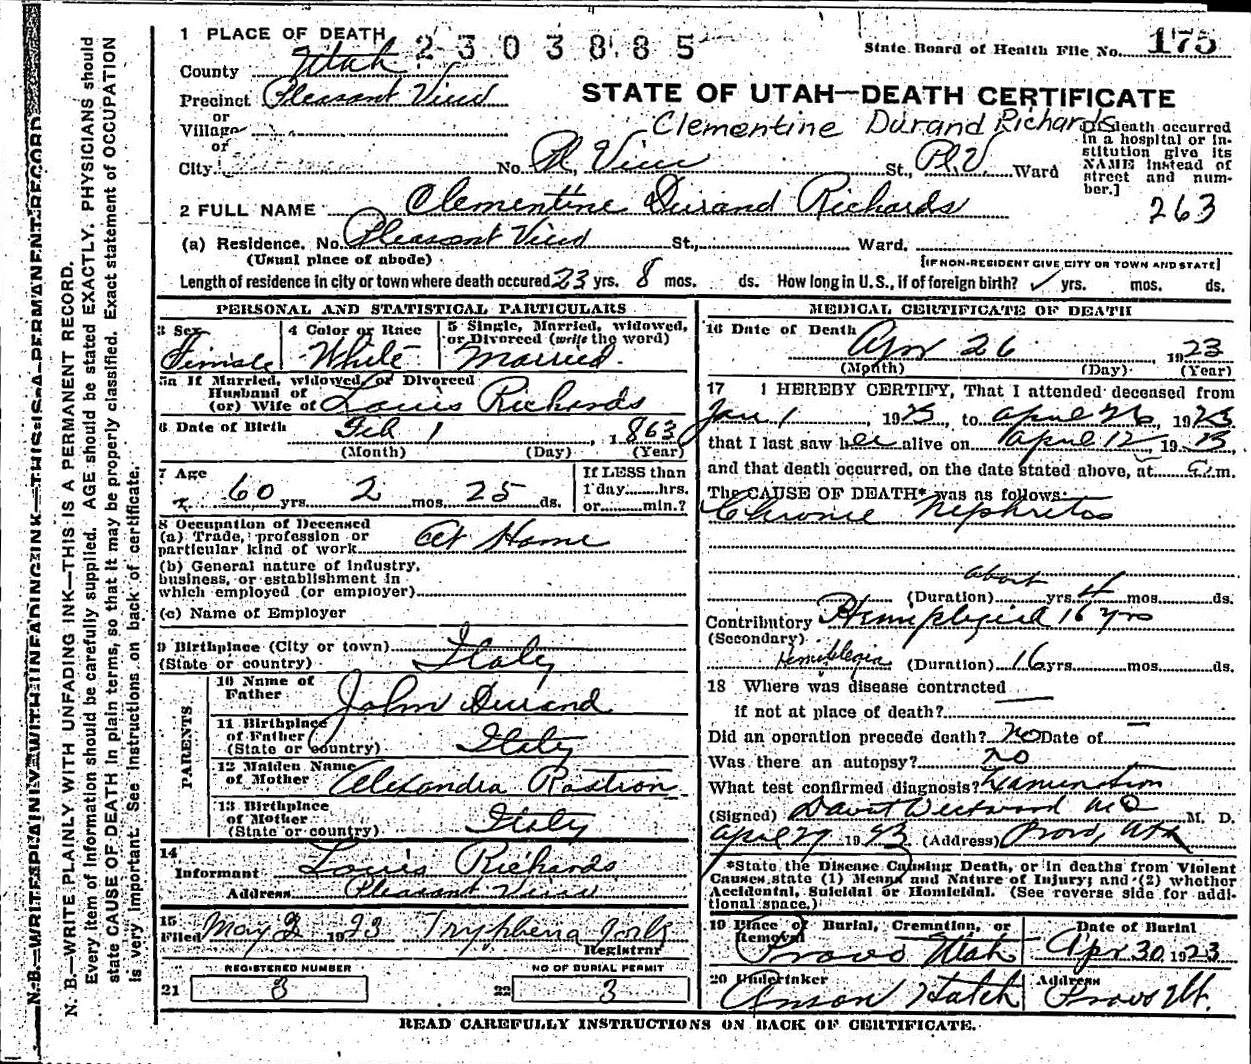 1 PLACE OF DEATH 2303885
State Board of Health File No. 175
County Utah
Precinct Pleasant View
STATE OF UTAH—DEATH CERTIFICATE
or
Village
Clementine Durand Richards
or
City No. Pl. View St., Pl. V. Ward
[If death occurred in a hospital or institution give its NAME instead of street and number.]
263
2 FULL NAME Clementine Durand Richards
(a) Residence. No. Pleasant View St., Ward.
(Usual place of abode) [IF NON-RESIDENT GIVE CITY OR TOWN AND STATE]
Length of residence in city or town where death occured 23 yrs. 8 mos. ds. How long in U.S., if of foreign birth? ✓ yrs. mos. ds.
PERSONAL AND STATISTICAL PARTICULARS
3 Sex 4 Color or Race 5 Single, Married, widowed, or Divorced (write the word)
Female White Married
5a If Married, widowed, or Divorced
Husband of
(or) Wife of Louis Richards
6 Date of Birth Feb 1, 1863
(Month) (Day) (Year)
7 Age If LESS than
60 yrs. 2 mos. 25 ds. 1 day......hrs.
or......min.?
8 Occupation of Deceased
(a) Trade, profession or
particular kind of work At Home
(b) General nature of industry,
business, or establishment in
which employed (or employer)
(c) Name of Employer
9 Birthplace (City or town)
(State or country) Italy
PARENTS
10 Name of
Father John Durand
11 Birthplace
of Father
(State or country) Italy
12 Maiden Name
of Mother Alexandra Rostion
13 Birthplace
of Mother
(State or country) Italy
14
Informant Louis Richards
Address Pleasant View
15
Filed May 2 1923 Tryphena
Registrar
REGISTERED NUMBER NO OF BURIAL PERMIT
21 3 22 3
MEDICAL CERTIFICATE OF DEATH
16 Date of Death
Apr 26, 1923
(Month) (Day) (Year)
17 I HEREBY CERTIFY, That I attended deceased from
Jan 1, 1923, to April 26, 1923
that I last saw her alive on April 12 1923
and that death occurred, on the date stated above, at m.
The CAUSE OF DEATH* was as follows:
Chronic Nephritos
about
(Duration) yrs. 4 mos. ds.
Contributory Hemiplegia 16 yrs
(Secondary)
Hemiplegia (Duration) 16 yrs. mos. ds.
18 Where was disease contracted —
if not at place of death? —
Did an operation precede death? no Date of —
Was there an autopsy? no
What test confirmed diagnosis? Examination
(Signed) David Westwood MD M. D.
April 27 1923 (Address) Provo, Utah
*State the Disease Causing Death, or in deaths from Violent
Causes, state (1) Means and Nature of Injury; and (2) whether
Accidental, Suicidal or Homicidal. (See reverse side for additional space.)
19 Place of Burial, Cremation, or Removal Date of Burial
Provo Utah Apr 30 1923
20 Undertaker Address
Anson Hatch Provo Ut.
READ CAREFULLY INSTRUCTIONS ON BACK OF CERTIFICATE.
N. B.—WRITE PLAINLY WITH UNFADING INK—THIS IS A PERMANENT RECORD
N. B.—WRITE PLAINLY WITH UNFADING INK—THIS IS A PERMANENT RECORD.
Every item of information should be carefully supplied. AGE should be stated EXACTLY. PHYSICIANS should
state CAUSE OF DEATH in plain terms, so that it may be properly classified. Exact statement of OCCUPATION
is very important. See instructions on back of certificate.